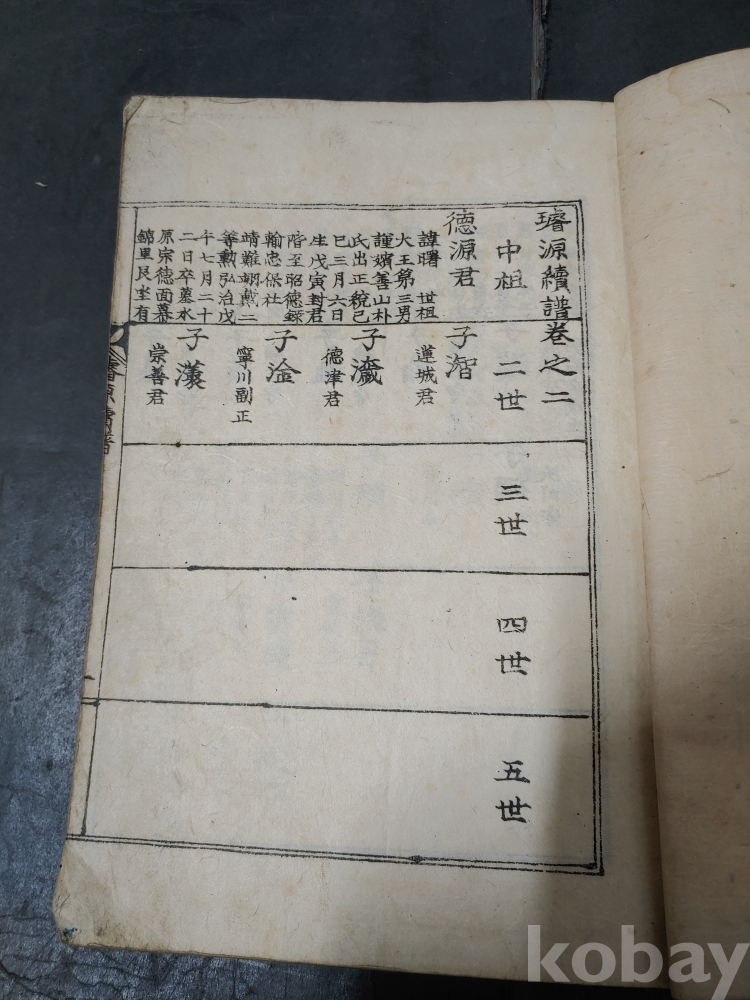 璿源續譜卷之二
中祖 二世 三世 四世 五世
德源君
諱曙 世祖
大王第三男
謹嬪善山朴
氏出正稅己
巳三月六日
生戊寅封君
階至昭德錄
輸忠保社
靖難翊戴二
等勲弘治戊
午七月二十
二日卒墓水
原宗德面慕
錦里艮坐有
子潪
蓮城君
子濊
德津君
子淦
寧川副正
子漢
崇善君
璿源續譜
kobay